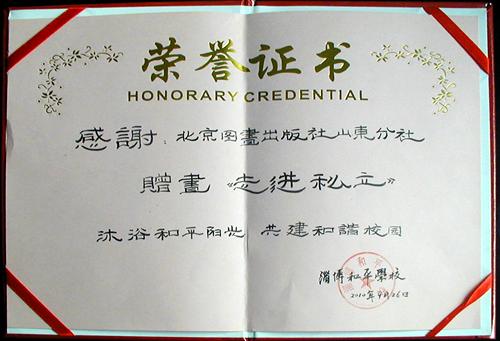 荣誉证书
HONORARY CREDENTIAL
感謝：北京图畫出版社山東分社
贈畫《走進私立》
沐浴和平阳光 共建和諧校园
淄博和平學校
2010年9月26日